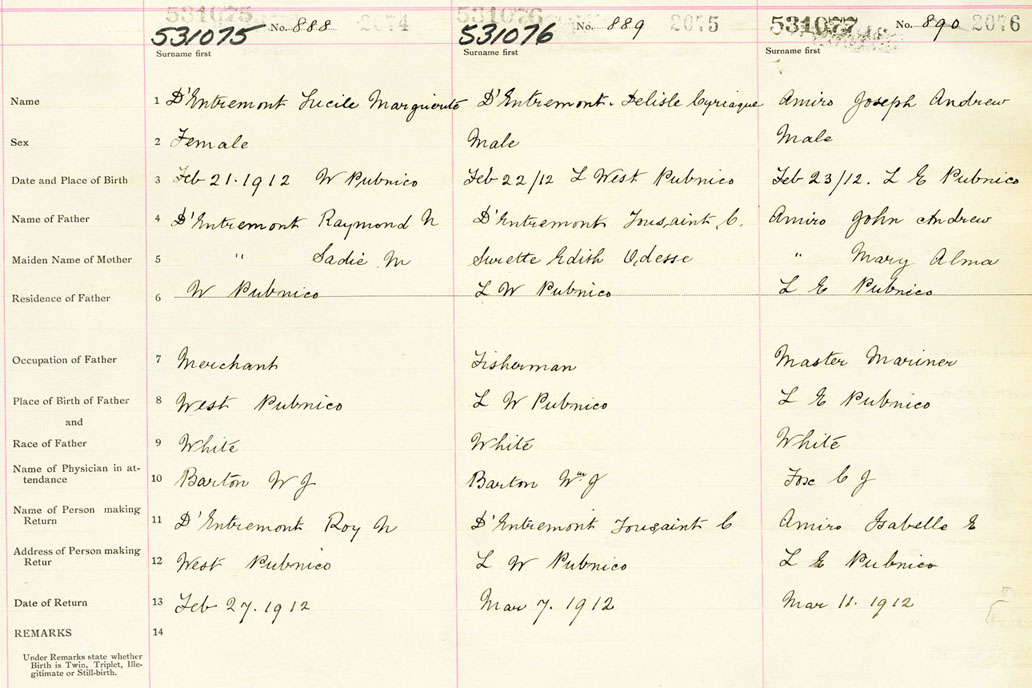 531075 531076 531077
531075 No. 888 2074 531076 No. 889 2075 No. 890 2076
Surname first Surname first Surname first
Name 1 D'Entremont Lucile Marguerite D'Entremont. Delisle Cyriaque Amiro Joseph Andrew
Sex 2 Female Male Male
Date and Place of Birth 3 Feb 21. 1912 W Pubnico Feb 22/12 L West Pubnico Feb 23/12. L E Pubnico
Name of Father 4 D'Entremont Raymond N D'Entremont Tousaint C. Amiro John Andrew
Maiden Name of Mother 5 " Sadie M Surette Edith Odesse " Mary Alma
Residence of Father 6 W Pubnico L W Pubnico L E Pubnico
Occupation of Father 7 Merchant Fisherman Master Mariner
Place of Birth of Father 8 West Pubnico L W Pubnico L E Pubnico
and
Race of Father 9 White White White
Name of Physician in at-
tendance 10 Barton W J Barton Wm J Fox C J
Name of Person making
Return 11 D'Entremont Roy N D'Entremont Tousaint C Amiro Isabelle E
Address of Person making
Retur 12 West Pubnico L W Pubnico L E Pubnico
Date of Return 13 Feb 27. 1912 Mar 7. 1912 Mar 11. 1912
REMARKS 14
Under Remarks state whether
Birth is Twin, Triplet, Ille-
gitimate or Still-birth.